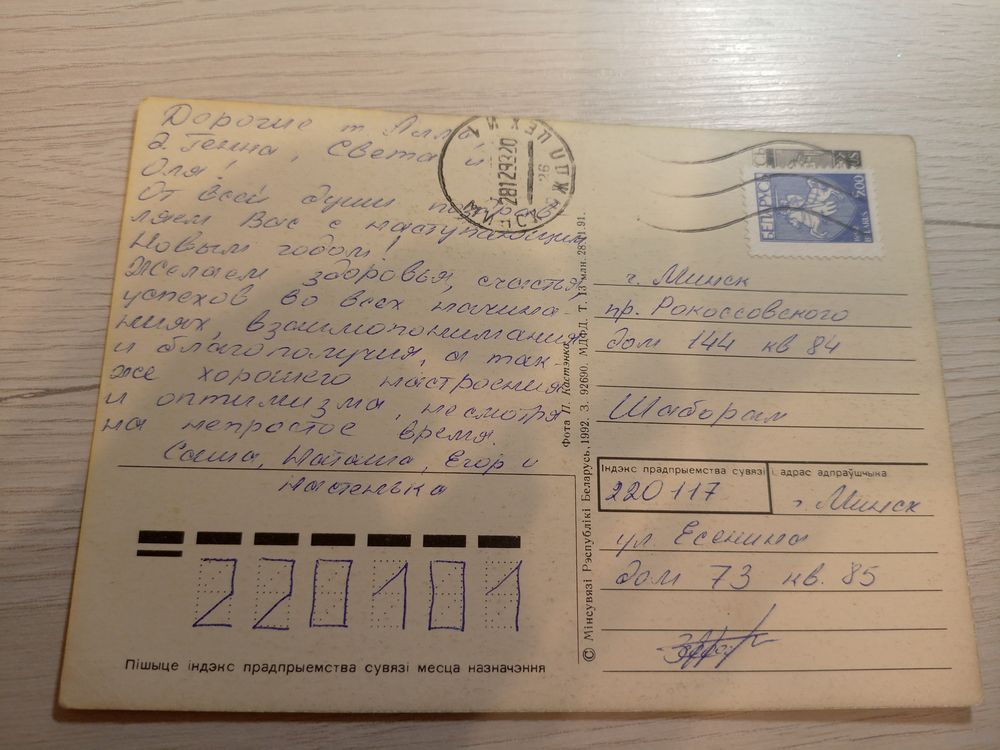 Дорогие т. Алла,
д. Генна, Света и
Оля!
От всей души поздрав-
ляем Вас с наступающим
Новым годом!
Желаем здоровья, счастья,
успехов во всех начина-
ниях, взаимопонимания
и благополучия, а так
же хорошего настроения
и оптимизма, несмотря
на непростое время.
Саша, Наташа, Егор и
Настенька
220101
Пішыце індэкс прадпрыемства сувязі месца назначэння
Фота П. Кастэнка
© Мінсувязі Рэспублікі Беларусь, 1992. З. 92690. МДФД. Т. 13 млн. 28.11.91.
БЕЛАРУСЬ
7.00
28129320
г. Минск
пр. Рокоссовского
дом 144 кв 84
Шаборам
Індэкс прадпрыемства сувязі і адрас адпраўшчыка
220117
г. Минск
ул. Есенина
дом 73 кв. 85